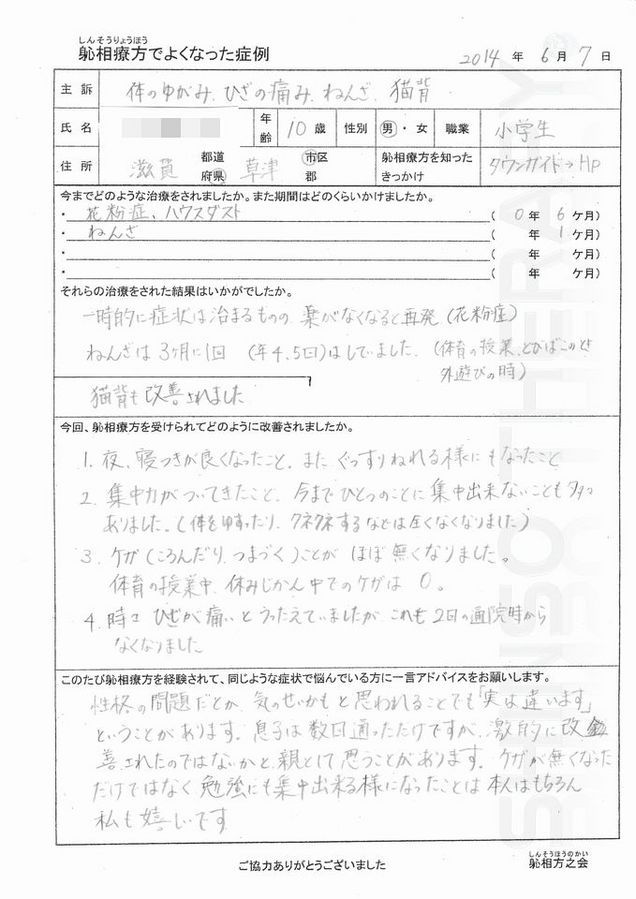 しんそうりょうほう
䏮相療方でよくなった症例
2014 年 6 月 7 日
主訴 体のゆがみ、ひざの痛み、ねんざ、猫背
氏名 年齢 10 歳 性別 男・女 職業 小学生
住所 滋賀 都道府県 草津 市区郡 䏮相療方を知ったきっかけ タウンガイド→HP
今までどのような治療をされましたか。また期間はどのくらいかけましたか。
・花粉症、ハウスダスト ( 0 年 6 ケ月)
・ねんざ ( 年 1 ケ月)
・ ( 年 ケ月)
・ ( 年 ケ月)
それらの治療をされた結果はいかがでしたか。
一時的に症状は治まるものの、薬がなくなると再発(花粉症)
ねんざは3ヶ月に1回 (年4.5回)はしていました。(体育の授業、とびばこのとき
外遊びの時)
猫背も改善されました
今回、䏮相療方を受けられてどのように改善されましたか。
1. 夜、寝つきが良くなったこと。また ぐっすりねれる様にもなったこと
2. 集中力がついてきたこと、今までひとつのことに集中出来ないことも多々
ありました。(体をゆすったり、クネクネするなどは全くなくなりました)
3. ケガ(ころんだり、つまづく)ことが ほぼ無くなりました。
体育の授業中、休みじかん中でのケガは 0。
4. 時々ひざが痛いとうったえていましたが、これも2回の通院時から
なくなりました
このたび䏮相療方を経験されて、同じような症状で悩んでいる方に一言アドバイスをお願いします。
性格の問題だとか、気のせいかもと思われることでも「実は違います」
ということがあります。息子は数回通っただけですが、激的に改
善されたのではないかと、親として思うことがあります。ケガが無くなった
だけではなく 勉強にも集中出来る様になったことは 本人はもちろん
私も嬉しいです
ご協力ありがとうございました
しんそうほうのかい
䏮相方之会
SHINSO THERAPY